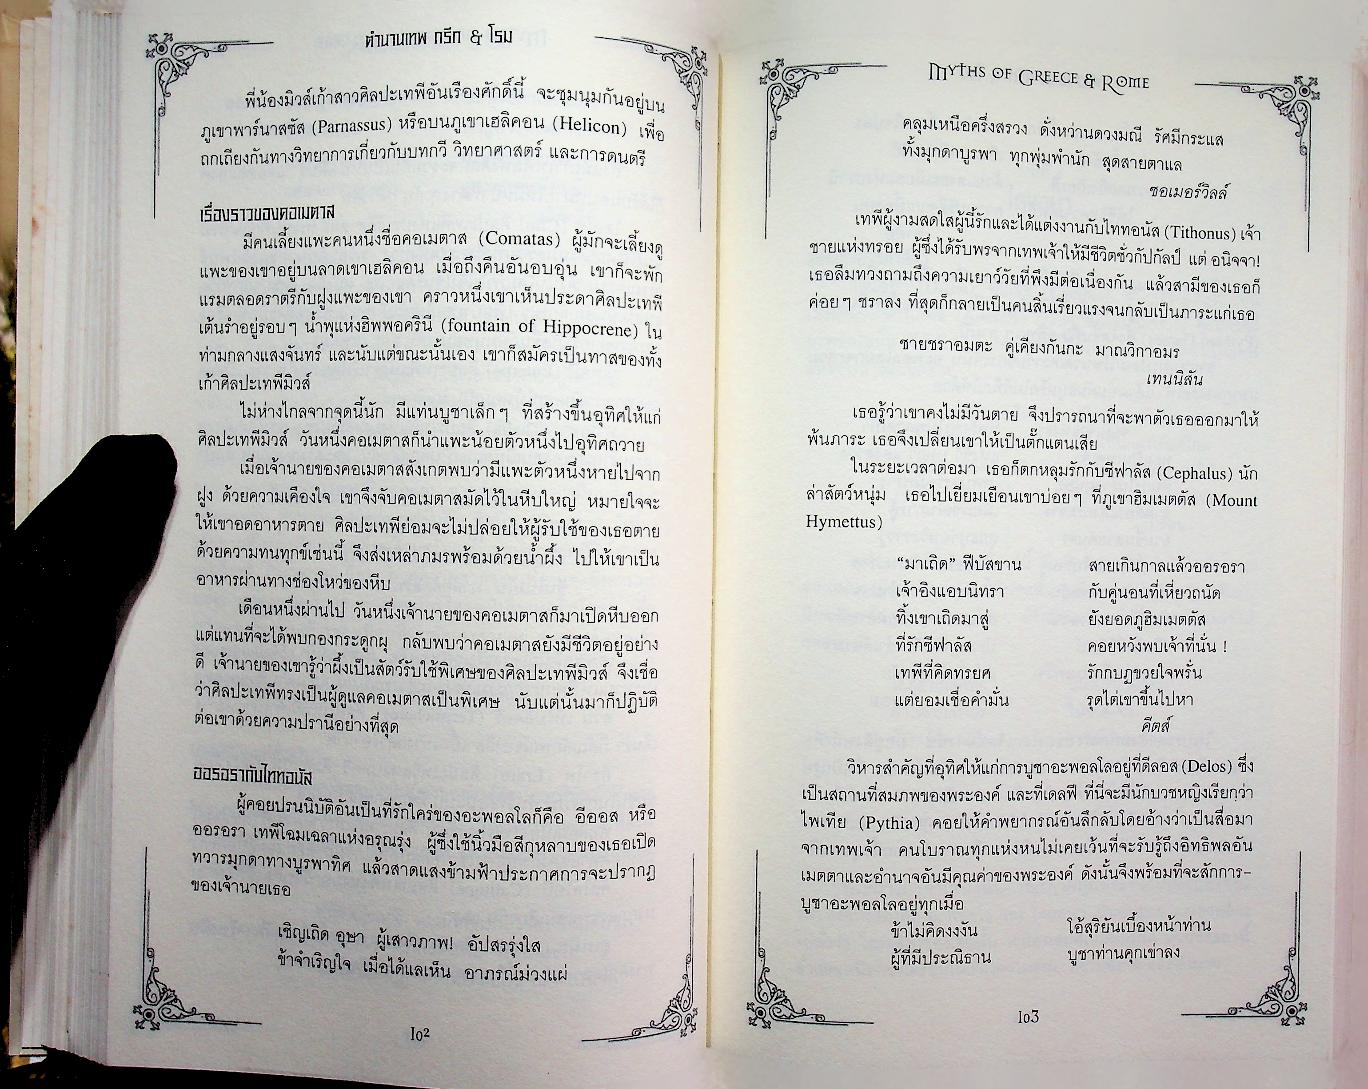 ตำนานเทพ กรีก & โรม
พี่น้องมิวส์เก้าสาวศิลปะเทพีอันเรืองศักดิ์นี้ จะชุมนุมกันอยู่บน
ภูเขาพาร์นาสซัส (Parnassus) หรือบนภูเขาเฮลิคอน (Helicon) เพื่อ
ถกเถียงกันทางวิทยาการเกี่ยวกับบทกวี วิทยาศาสตร์ และการดนตรี
เรื่องราวของคอเมตาส
มีคนเลี้ยงแพะคนหนึ่งชื่อคอเมตาส (Comatas) ผู้มักจะเลี้ยงดู
แพะของเขาอยู่บนลาดเขาเฮลิคอน เมื่อถึงคืนอันอบอุ่น เขาก็จะพัก
แรมตลอดราตรีกับฝูงแพะของเขา คราวหนึ่งเขาเห็นประดาศิลปะเทพี
เต้นรำอยู่รอบๆ น้ำพุแห่งฮิพพอครินี (fountain of Hippocrene) ใน
ท่ามกลางแสงจันทร์ และนับแต่ขณะนั้นเอง เขาก็สมัครเป็นทาสของทั้ง
เก้าศิลปะเทพีมิวส์
ไม่ห่างไกลจากจุดนี้นัก มีแท่นบูชาเล็กๆ ที่สร้างขึ้นอุทิศให้แก่
ศิลปะเทพีมิวส์ วันหนึ่งคอเมตาสก็นำแพะน้อยตัวหนึ่งไปอุทิศถวาย
เมื่อเจ้านายของคอเมตาสสังเกตพบว่ามีแพะตัวหนึ่งหายไปจาก
ฝูง ด้วยความเคืองใจ เขาจึงจับคอเมตาสมัดไว้ในหีบใหญ่ หมายใจจะ
ให้เขาอดอาหารตาย ศิลปะเทพีย่อมจะไม่ปล่อยให้ผู้รับใช้ของเธอตาย
ด้วยความทนทุกข์เช่นนี้ จึงส่งเหล่าภมรพร้อมด้วยน้ำผึ้ง ไปให้เขาเป็น
อาหารผ่านทางช่องโหว่ของหีบ
เดือนหนึ่งผ่านไป วันหนึ่งเจ้านายของคอเมตาสก็มาเปิดหีบออก
แต่แทนที่จะได้พบกองกระดูกผุ กลับพบว่าคอเมตาสยังมีชีวิตอยู่อย่าง
ดี เจ้านายของเขารู้ว่าผึ้งเป็นสัตว์รับใช้พิเศษของศิลปะเทพีมิวส์ จึงเชื่อ
ว่าศิลปะเทพีทรงเป็นผู้ดูแลคอเมตาสเป็นพิเศษ นับแต่นั้นมาก็ปฏิบัติ
ต่อเขาด้วยความปรานีอย่างที่สุด
ออรอรากับไททอนัส
ผู้คอยปรนนิบัติอันเป็นที่รักใคร่ของอะพอลโลก็คือ อีออส หรือ
ออรอรา เทพีโฉมเฉลาแห่งอรุณรุ่ง ผู้ซึ่งใช้นิ้วมือสีกุหลาบของเธอเปิด
ทวารมุกดาทางบูรพาทิศ แล้วสาดแสงข้ามฟ้าประกาศการจะปรากฏ
ของเจ้านายเธอ
เชิญเถิด อุษา ผู้เสาวภาพ! อัปสรรุ่งใส
ข้าจำเริญใจ เมื่อได้แลเห็น อาภรณ์ม่วงแผ่
102
MYTHS OF GREECE & ROME
คลุมเหนือครึ่งสรวง ดั่งหว่านดวงมณี รัศมีกระแส
ทั้งมุกดาบูรพา ทุกพุ่มพำนัก สุดสายตาแล
ซอเมอร์วิลล์
เทพีผู้งามสดใสผู้นี้รักและได้แต่งงานกับไททอนัส (Tithonus) เจ้า
ชายแห่งทรอย ผู้ซึ่งได้รับพรจากเทพเจ้าให้มีชีวิตชั่วกัปกัลป์ แต่ อนิจจา!
เธอลืมทวงถามถึงความเยาว์วัยที่พึงมีต่อเนื่องกัน แล้วสามีของเธอก็
ค่อยๆ ชราลง ที่สุดก็กลายเป็นคนสิ้นเรี่ยวแรงจนกลับเป็นภาระแก่เธอ
ชายชราอมตะ คู่เคียงกันกะ มาณวิกาอมร
เทนนิสัน
เธอรู้ว่าเขาคงไม่มีวันตาย จึงปรารถนาที่จะพาตัวเธอออกมาให้
พ้นภาระ เธอจึงเปลี่ยนเขาให้เป็นตั๊กแตนเสีย
ในระยะเวลาต่อมา เธอก็ตกหลุมรักกับซีฟาลัส (Cephalus) นัก
ล่าสัตว์หนุ่ม เธอไปเยี่ยมเยือนเขาบ่อยๆ ที่ภูเขาฮิมเมตตัส (Mount
Hymettus)
“มาเถิด” ฟีบัสขาน สายเกินกาลแล้วออรอรา
เจ้าอิงแอบนิทรา กับคู่นอนที่เหี่ยวถนัด
ทิ้งเขาเถิดมาสู่ ยังยอดภูฮิมเมตตัส
ที่รักซีฟาลัส คอยหวังพบเจ้าที่นั่น !
เทพีที่คิดทรยศ รักกบฏขวยใจพรั่น
แต่ยอมเชื่อคำมั่น รุดไต่เขาขึ้นไปหา
คีตส์
วิหารสำคัญที่อุทิศให้แก่การบูชาอะพอลโลอยู่ที่ดีลอส (Delos) ซึ่ง
เป็นสถานที่สมภพของพระองค์ และที่เดลฟี ที่นี่จะมีนักบวชหญิงเรียกว่า
ไพเทีย (Pythia) คอยให้คำพยากรณ์อันลึกลับโดยอ้างว่าเป็นสื่อมา
จากเทพเจ้า คนโบราณทุกแห่งหนไม่เคยเว้นที่จะรับรู้ถึงอิทธิพลอัน
เมตตาและอำนาจอันมีคุณค่าของพระองค์ ดังนั้นจึงพร้อมที่จะสักการะ-
บูชาอะพอลโลอยู่ทุกเมื่อ
ข้าไม่คิดงงงัน โอ้สุริยันเบื้องหน้าท่าน
ผู้ที่มีประณิธาน บูชาท่านคุกเข่าลง
103